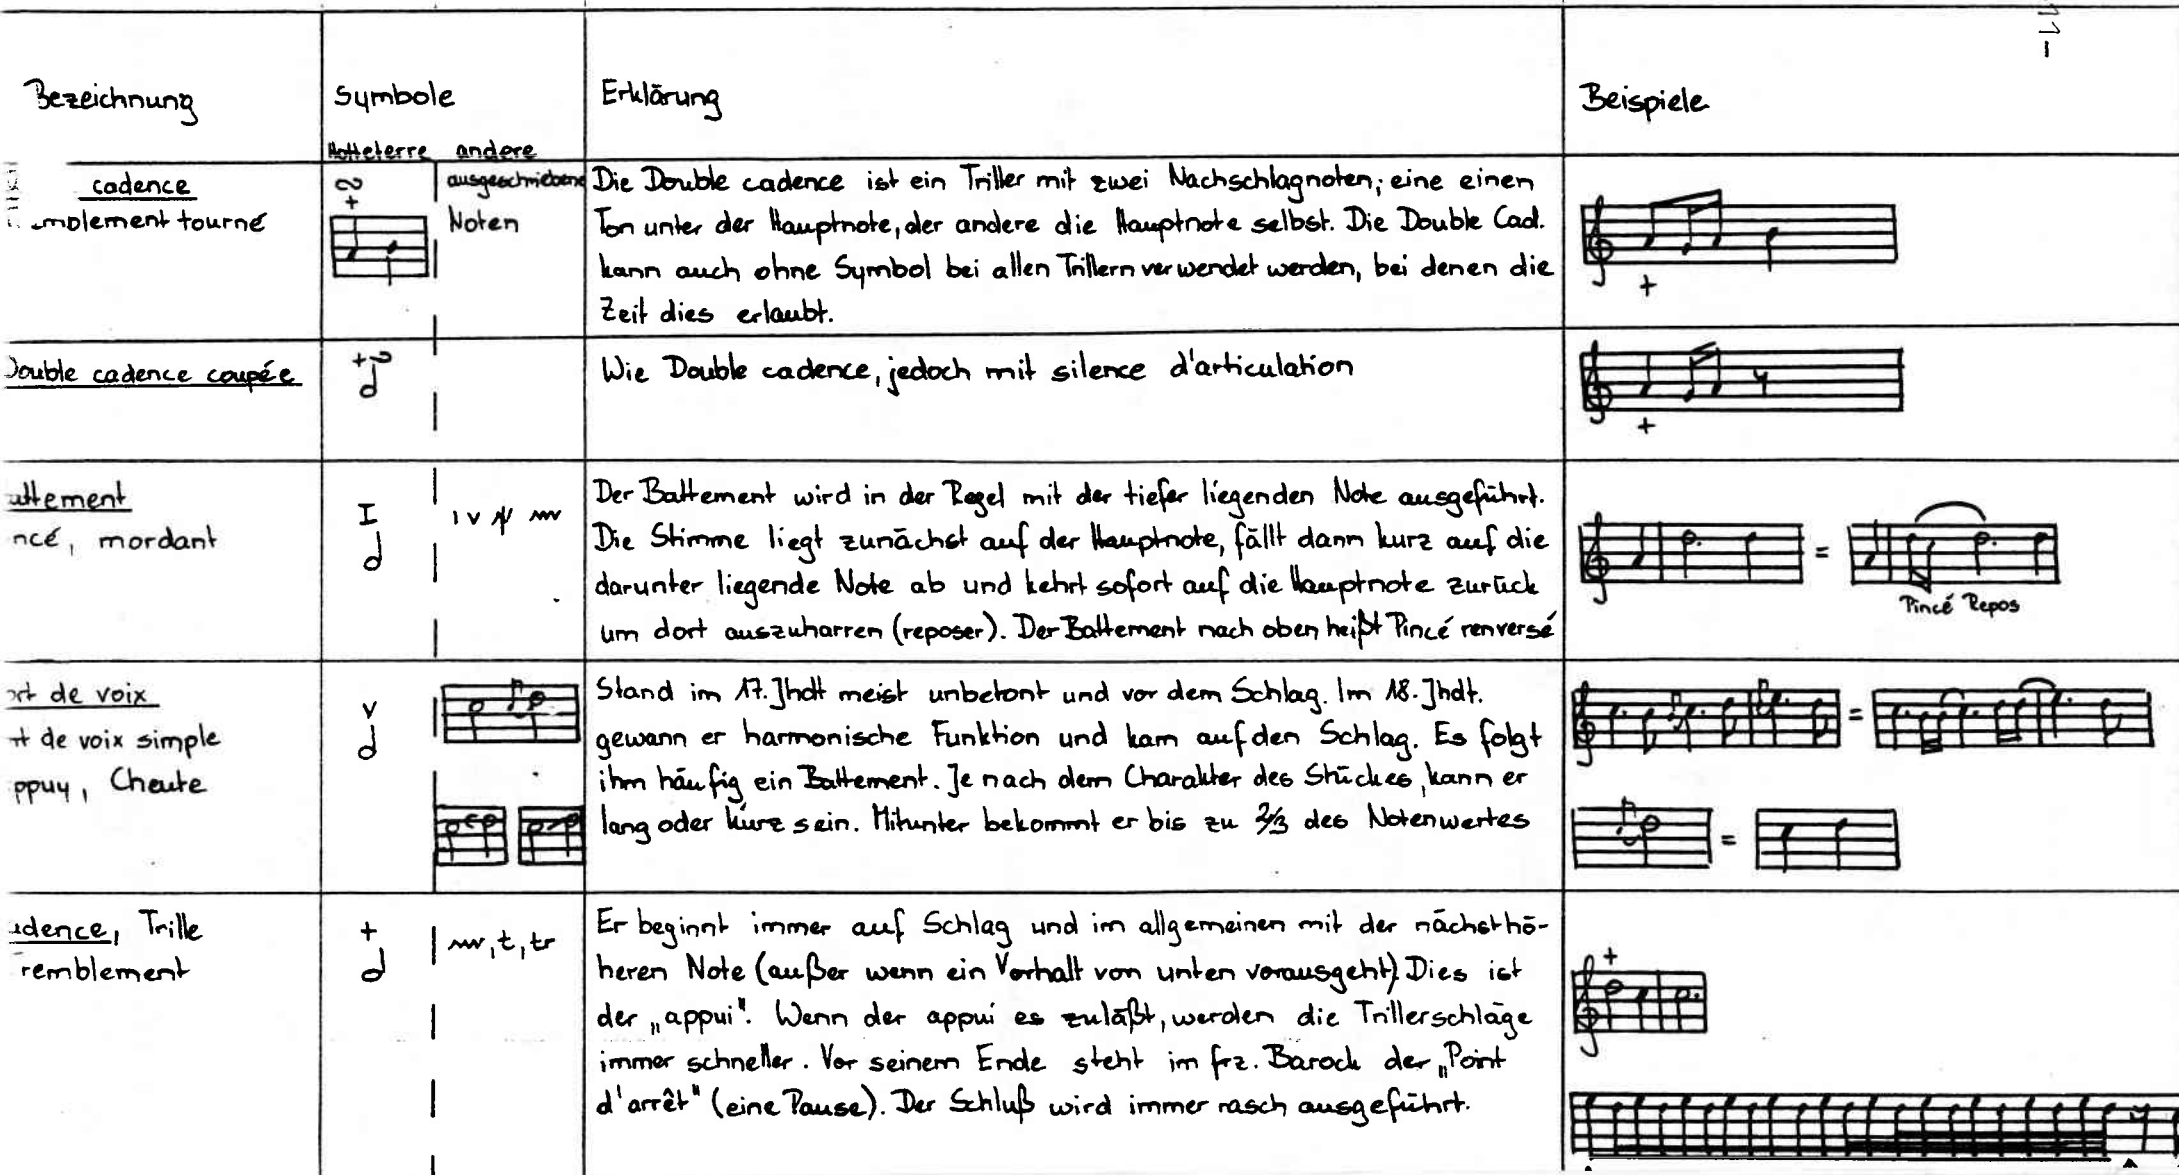 11-
Bezeichnung
Symbole
Erklärung
Beispiele
Hotteterre andere
cadence
tourné
ausgeschriebene
Noten
Die Double cadence ist ein Triller mit zwei Nachschlagnoten; eine einen
Ton unter der Hauptnote, der andere die Hauptnote selbst. Die Double Cad.
kann auch ohne Symbol bei allen Trillern verwendet werden, bei denen die
Zeit dies erlaubt.
Double cadence coupée
Wie Double cadence, jedoch mit silence d'articulation
attement
ncé, mordant
Der Battement wird in der Regel mit der tiefer liegenden Note ausgeführt.
Die Stimme liegt zunächst auf der Hauptnote, fällt dann kurz auf die
darunter liegende Note ab und kehrt sofort auf die Hauptnote zurück
um dort auszuharren (reposer). Der Battement nach oben heißt Pincé renversé
Pincé Repos
ort de voix
rt de voix simple
ppuy, Cheute
Stand im 17. Jhdt meist unbetont und vor dem Schlag. Im 18. Jhdt.
gewann er harmonische Funktion und kam auf den Schlag. Es folgt
ihm häufig ein Battement. Je nach dem Charakter des Stückes, kann er
lang oder kurz sein. Mitunter bekommt er bis zu 2/3 des Notenwertes
adence, Trille
remblement
+
t, tr
Er beginnt immer auf Schlag und im allgemeinen mit der nächsthö-
heren Note (außer wenn ein Vorhalt von unten vorausgeht). Dies ist
der „appui". Wenn der appui es zuläßt, werden die Trillerschläge
immer schneller. Vor seinem Ende steht im frz. Barock der „Point
d'arrêt" (eine Pause). Der Schluß wird immer rasch ausgeführt.